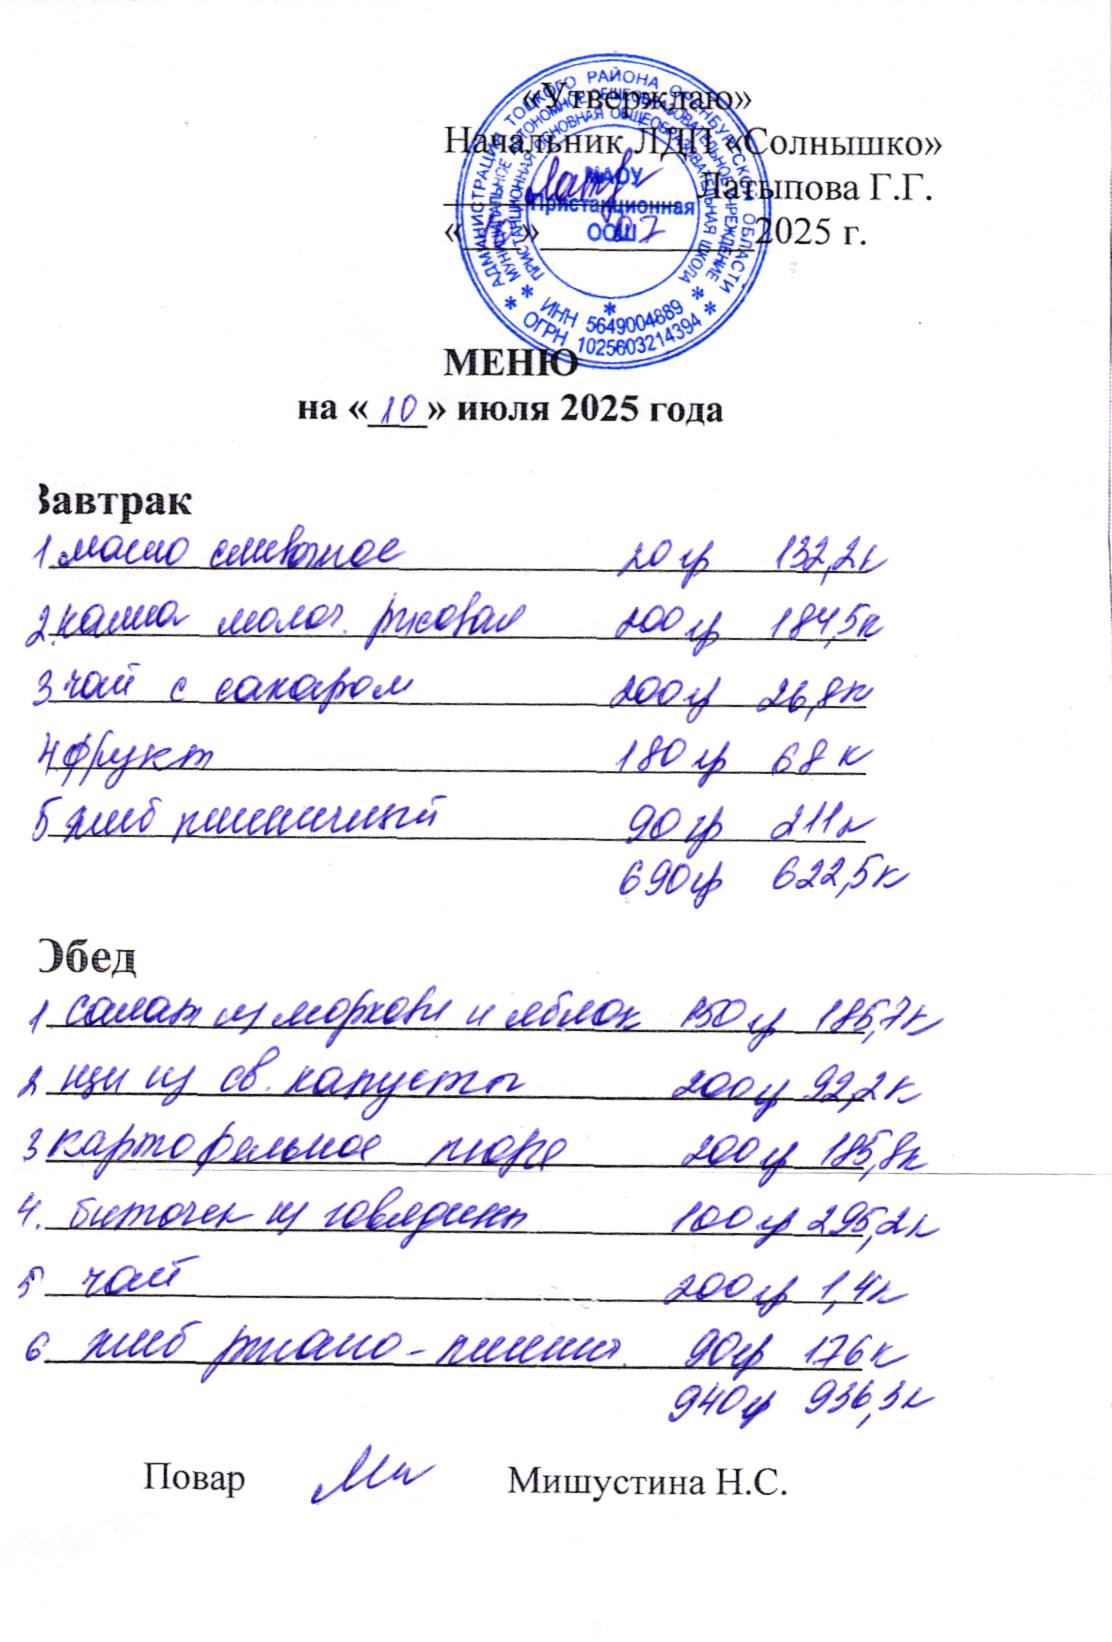 «Утверждаю»
Начальник ЛДП «Солнышко»
Латыпова Г.Г.
« » 07 2025 г.
АДМИНИСТРАЦИЯ ТОЦКОГО РАЙОНА ОРЕНБУРГСКОЙ ОБЛАСТИ
МУНИЦИПАЛЬНОЕ АВТОНОМНОЕ ОБЩЕОБРАЗОВАТЕЛЬНОЕ УЧРЕЖДЕНИЕ
ПРИСТАНЦИОННАЯ ОСНОВНАЯ ОБЩЕОБРАЗОВАТЕЛЬНАЯ ШКОЛА
МАОУ
Пристанционная
ООШ
* ИНН 5649004889 *
* ОГРН 1025603214394 *
МЕНЮ
на «10» июля 2025 года
Завтрак
1 масло сливочное 20 гр 132,2к
2. каша молоч. рисовая 200 гр 184,5к
3 чай с сахаром 200 гр 26,8к
4 фрукт 180 гр 68 к
5 хлеб пшеничный 90 гр 211к
690 гр 622,5к
Обед
1 салат из моркови и яблок 150 гр 185,7к
2 щи из св. капусты 200 гр 92,2к
3 картофельное пюре 200 гр 185,8к
4. биточек из говядины 100 гр 295,2к
5 чай 200 гр 1,4к
6 хлеб ржано-пшенич. 90 гр 176к
940 гр 936,3к
Повар Мишустина Н.С.